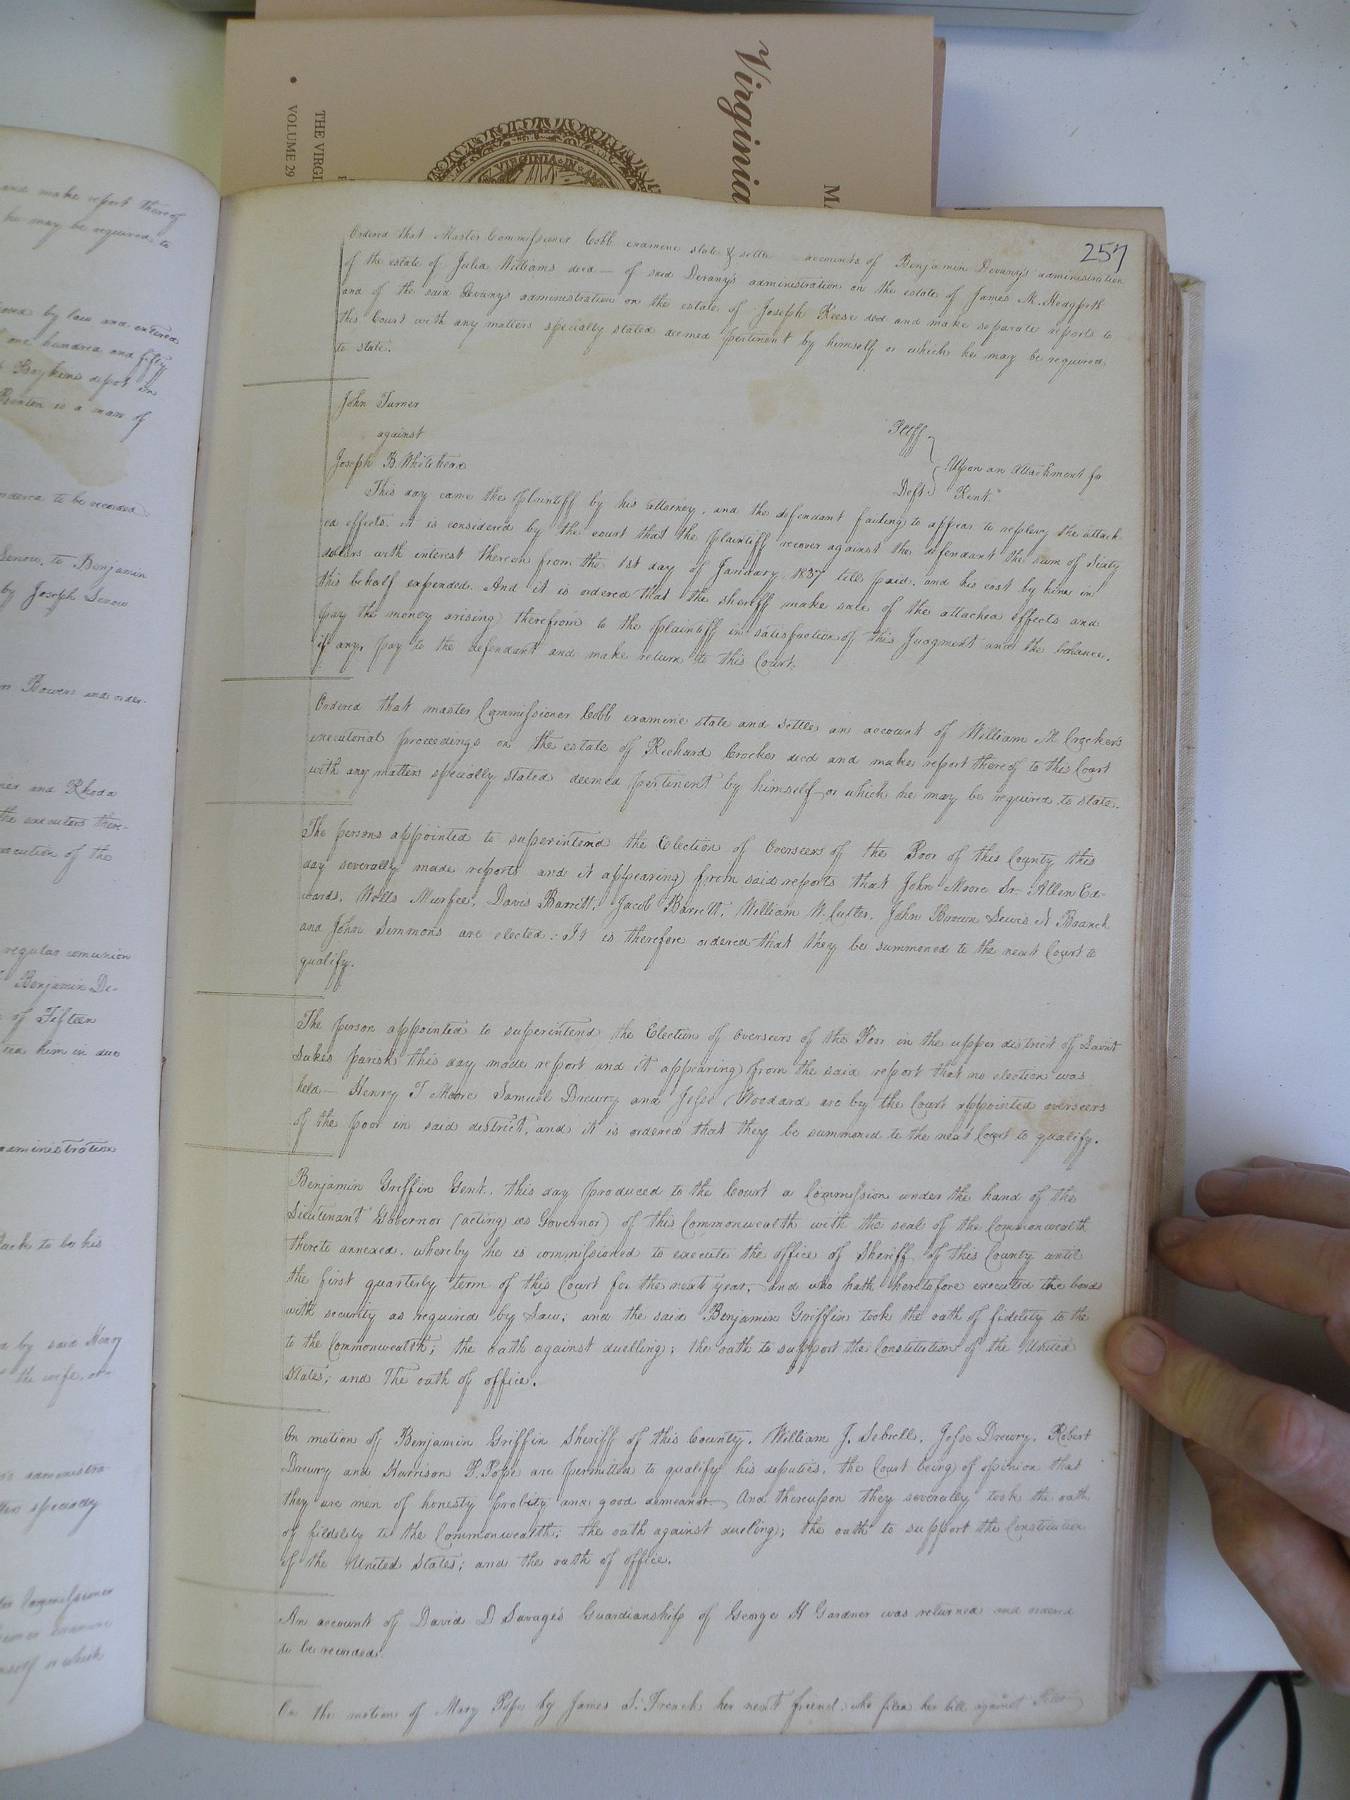 Virginia
MA
THE VIRGI
VOLUME 29
VIRGINIA IN A
and make report thereof
he may be required to
by law and entered
one hundred and fifty
Boykins depot on
Benton is a man of
ordered to be recorded
Senow, to Benjamin
by Joseph Senow
Bowers and order-
and Rhoda
the executors there-
execution of the
regular comunion
Benjamin De-
of Fifteen
him in due
administration
Jack to be his
by said Henry
the wife, or
administra-
specially
Commissioner
examine
himself or which
257
Ordered that Master Commissioner Cobb examine state & settle accounts of Benjamin Devany's administration
of the estate of Julia Williams decd — of said Devany's administration on the estate of James M. Hedgpeth
and of the said Devany's administration on the estate of Joseph Reese decd and make separate reports to
this Court with any matters specially stated deemed pertinent by himself or which he may be required
to state.
John Turner Pltff
against
Joseph B. Whitehead Deft. Upon an Attachment for Rent.
This day came the plaintiff by his attorney, and the defendant failing to appear to replevy the attach-
ed effects, it is considered by the court that the plaintiff recover against the defendant the sum of Sixty
dollars with interest thereon from the 1st day of January 1837 till paid, and his cost by him in
this behalf expended. And it is ordered that the sheriff make sale of the attached effects and
pay the money arising therefrom to the plaintiff in satisfaction of this Judgment and the balance,
if any, pay to the defendant and make return to this Court.
Ordered that master Commissioner Cobb examine state and settle an account of William M. Crocker's
executorial proceedings on the estate of Richard Crocker decd and make report thereof to this Court
with any matters specially stated deemed pertinent by himself or which he may be required to state.
The persons appointed to superintend the Election of Overseers of the Poor of this County this
day severally made reports and it appearing from said reports that John Moore Sr. Allen Ed-
wards, Wells Murfee, Davis Barrett, Jacob Barrett, William W. Cutler, John Brown Lewis N Branch
and John Simmons are elected: It is therefore ordered that they be summoned to the next Court to
qualify.
The person appointed to superintend the Election of Overseers of the Poor in the upper district of Saint
Lukes parish this day made report and it appearing from the said report that no election was
held — Henry T Moore Samuel Drewry and Jesse Woodard are by the Court appointed overseers
of the poor in said district, and it is ordered that they be summoned to the next Court to qualify.
Benjamin Griffin Gent. this day produced to the Court a Commission under the hand of the
Lieutenant Governor (acting as Governor) of this Commonwealth with the seal of the Commonwealth
thereto annexed, whereby he is commissioned to execute the office of Sheriff of this County until
the first quarterly term of this Court for the next year, and who hath heretofore executed the bond
with security as required by Law; and the said Benjamin Griffin took the oath of fidelity to the
to the Commonwealth; the oath against duelling; the oath to support the Constitution of the United
States; and The oath of office.
On motion of Benjamin Griffin Sheriff of this County, William J. Sebrell, Jesse Drewry, Robert
Drewry and Harrison P. Pope are permitted to qualify his deputies, the Court being of opinion that
they are men of honesty probity and good demeanor — And thereupon they severally took the oath
of fidelity to the Commonwealth; the oath against dueling; the oath to support the Constitution
of the United States; and the oath of office.
An account of David D Savage's Guardianship of George H Gardner was returned and ordered
to be recorded.
On the motion of Mary Pope by James S. French her next friend, who filed her bill against